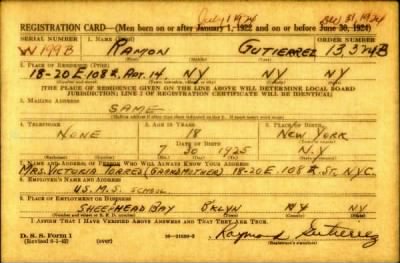 July 1924 Dec 31, 1924
REGISTRATION CARD—(Men born on or after January 1, 1922 and on or before June 30, 1924)
SERIAL NUMBER 1. NAME (Print) ORDER NUMBER
W 199B RAMON GUTIERREZ 13,324B
2. PLACE OF RESIDENCE (Print)
18-20 E. 108 St. APT. 14. NY NY
[THE PLACE OF RESIDENCE GIVEN ON THE LINE ABOVE WILL DETERMINE LOCAL BOARD
JURISDICTION; LINE 2 OF REGISTRATION CERTIFICATE WILL BE IDENTICAL]
3. MAILING ADDRESS
SAME
[Mailing address if other than place indicated on line 2. If same insert word same]
4. TELEPHONE 5. AGE IN YEARS 6. PLACE OF BIRTH
NONE 18 NEW YORK
DATE OF BIRTH
7 30 1925 N.Y
7. NAME AND ADDRESS OF PERSON WHO WILL ALWAYS KNOW YOUR ADDRESS
MRS. VICTORIA TORRES (GRANDMOTHER) 18-20 E. 108 St. NYC.
8. EMPLOYER'S NAME AND ADDRESS
U.S.M.S. SCHOOL
9. PLACE OF EMPLOYMENT OR BUSINESS
SHEEPHEAD BAY B'KLYN NY NY
I AFFIRM THAT I HAVE VERIFIED ABOVE ANSWERS AND THAT THEY ARE TRUE.
D. S. S. Form 1
(Revised 6-1-42) (over) Raymond Gutierrez
(Registrant's signature)